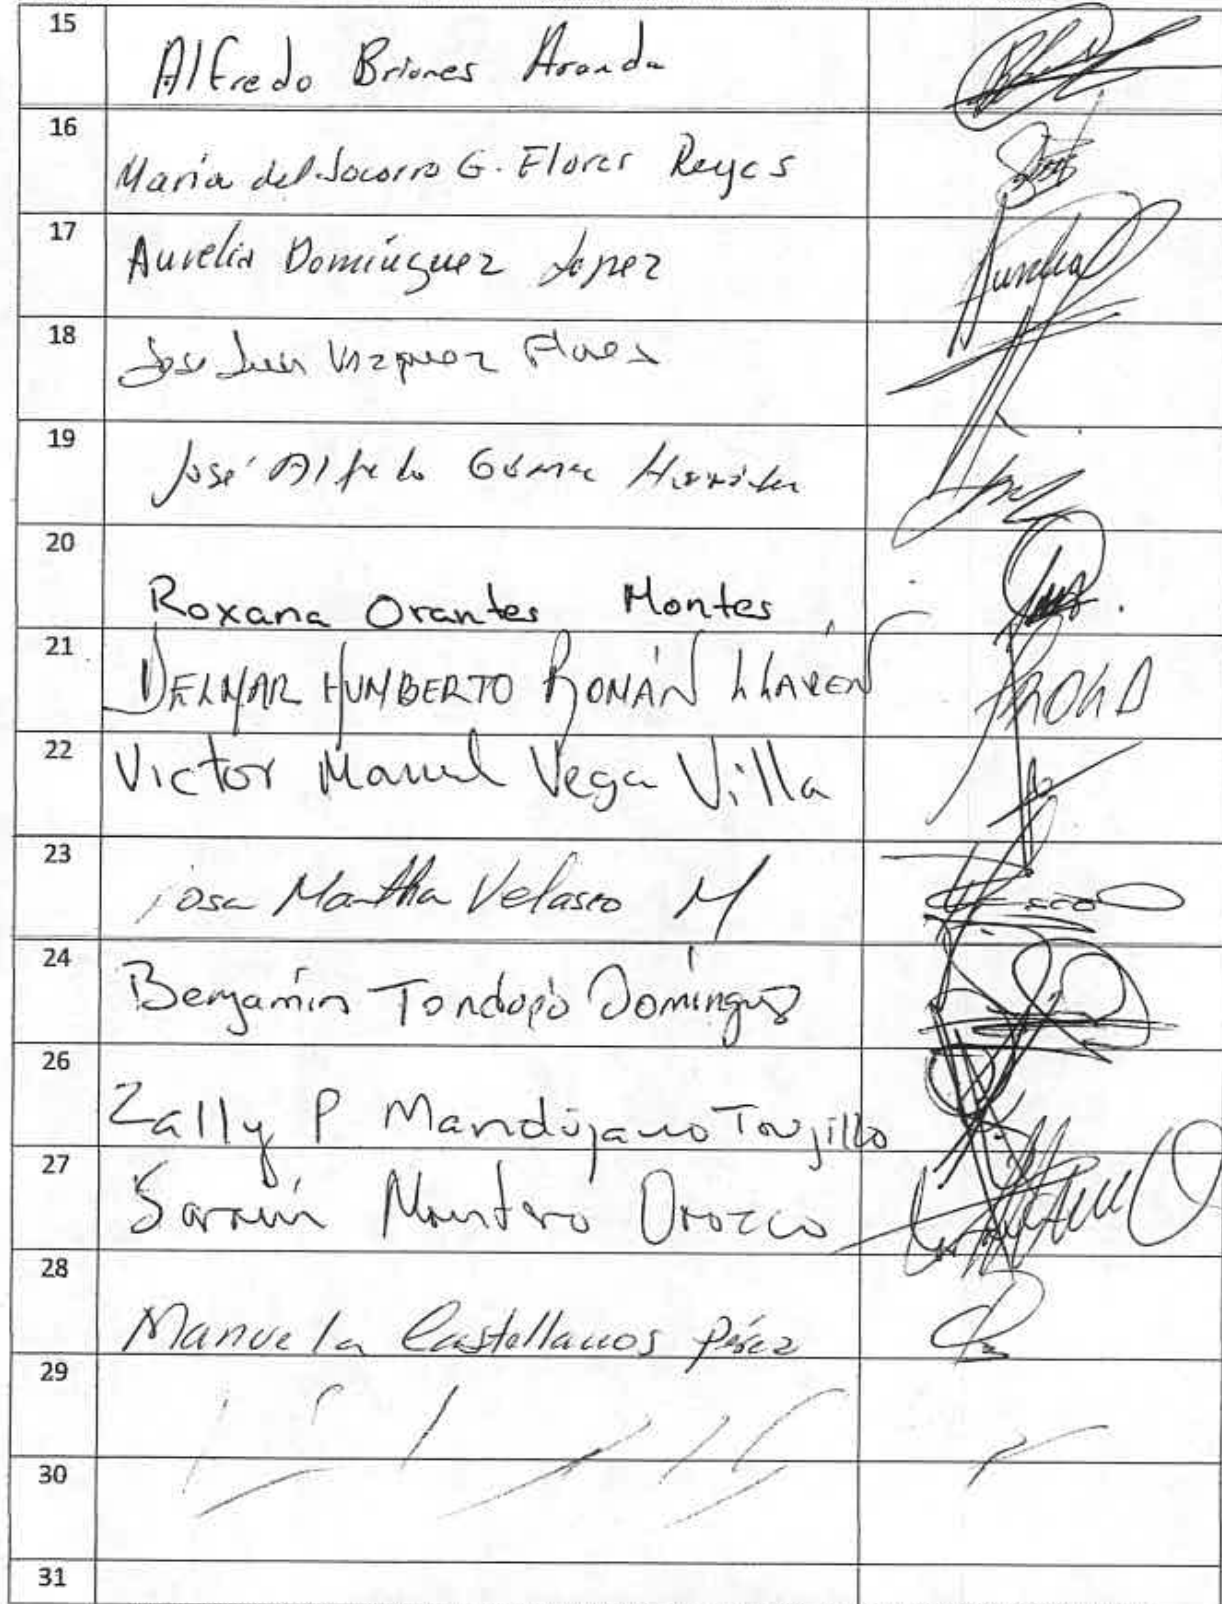 15 Alfredo Briones Aranda
16 María del Socorro G. Flores Reyes
17 Aurelia Domínguez Lopez Aurelia
18 Jose Luis Vazquez Flores
19 José Alfredo Gómez Hernández
20 Roxana Orantes Montes
21 DELMAR HUMBERTO ROMÁN LLAVEN
22 Victor Manuel Vega Villa
23 Rosa Martha Velasco M
24 Benjamín Tondopó Domínguez
26 Zally P Mandujano Trujillo
27 Sarain Montero Orozco
28 Manuela Castellanos Pérez
29
30
31